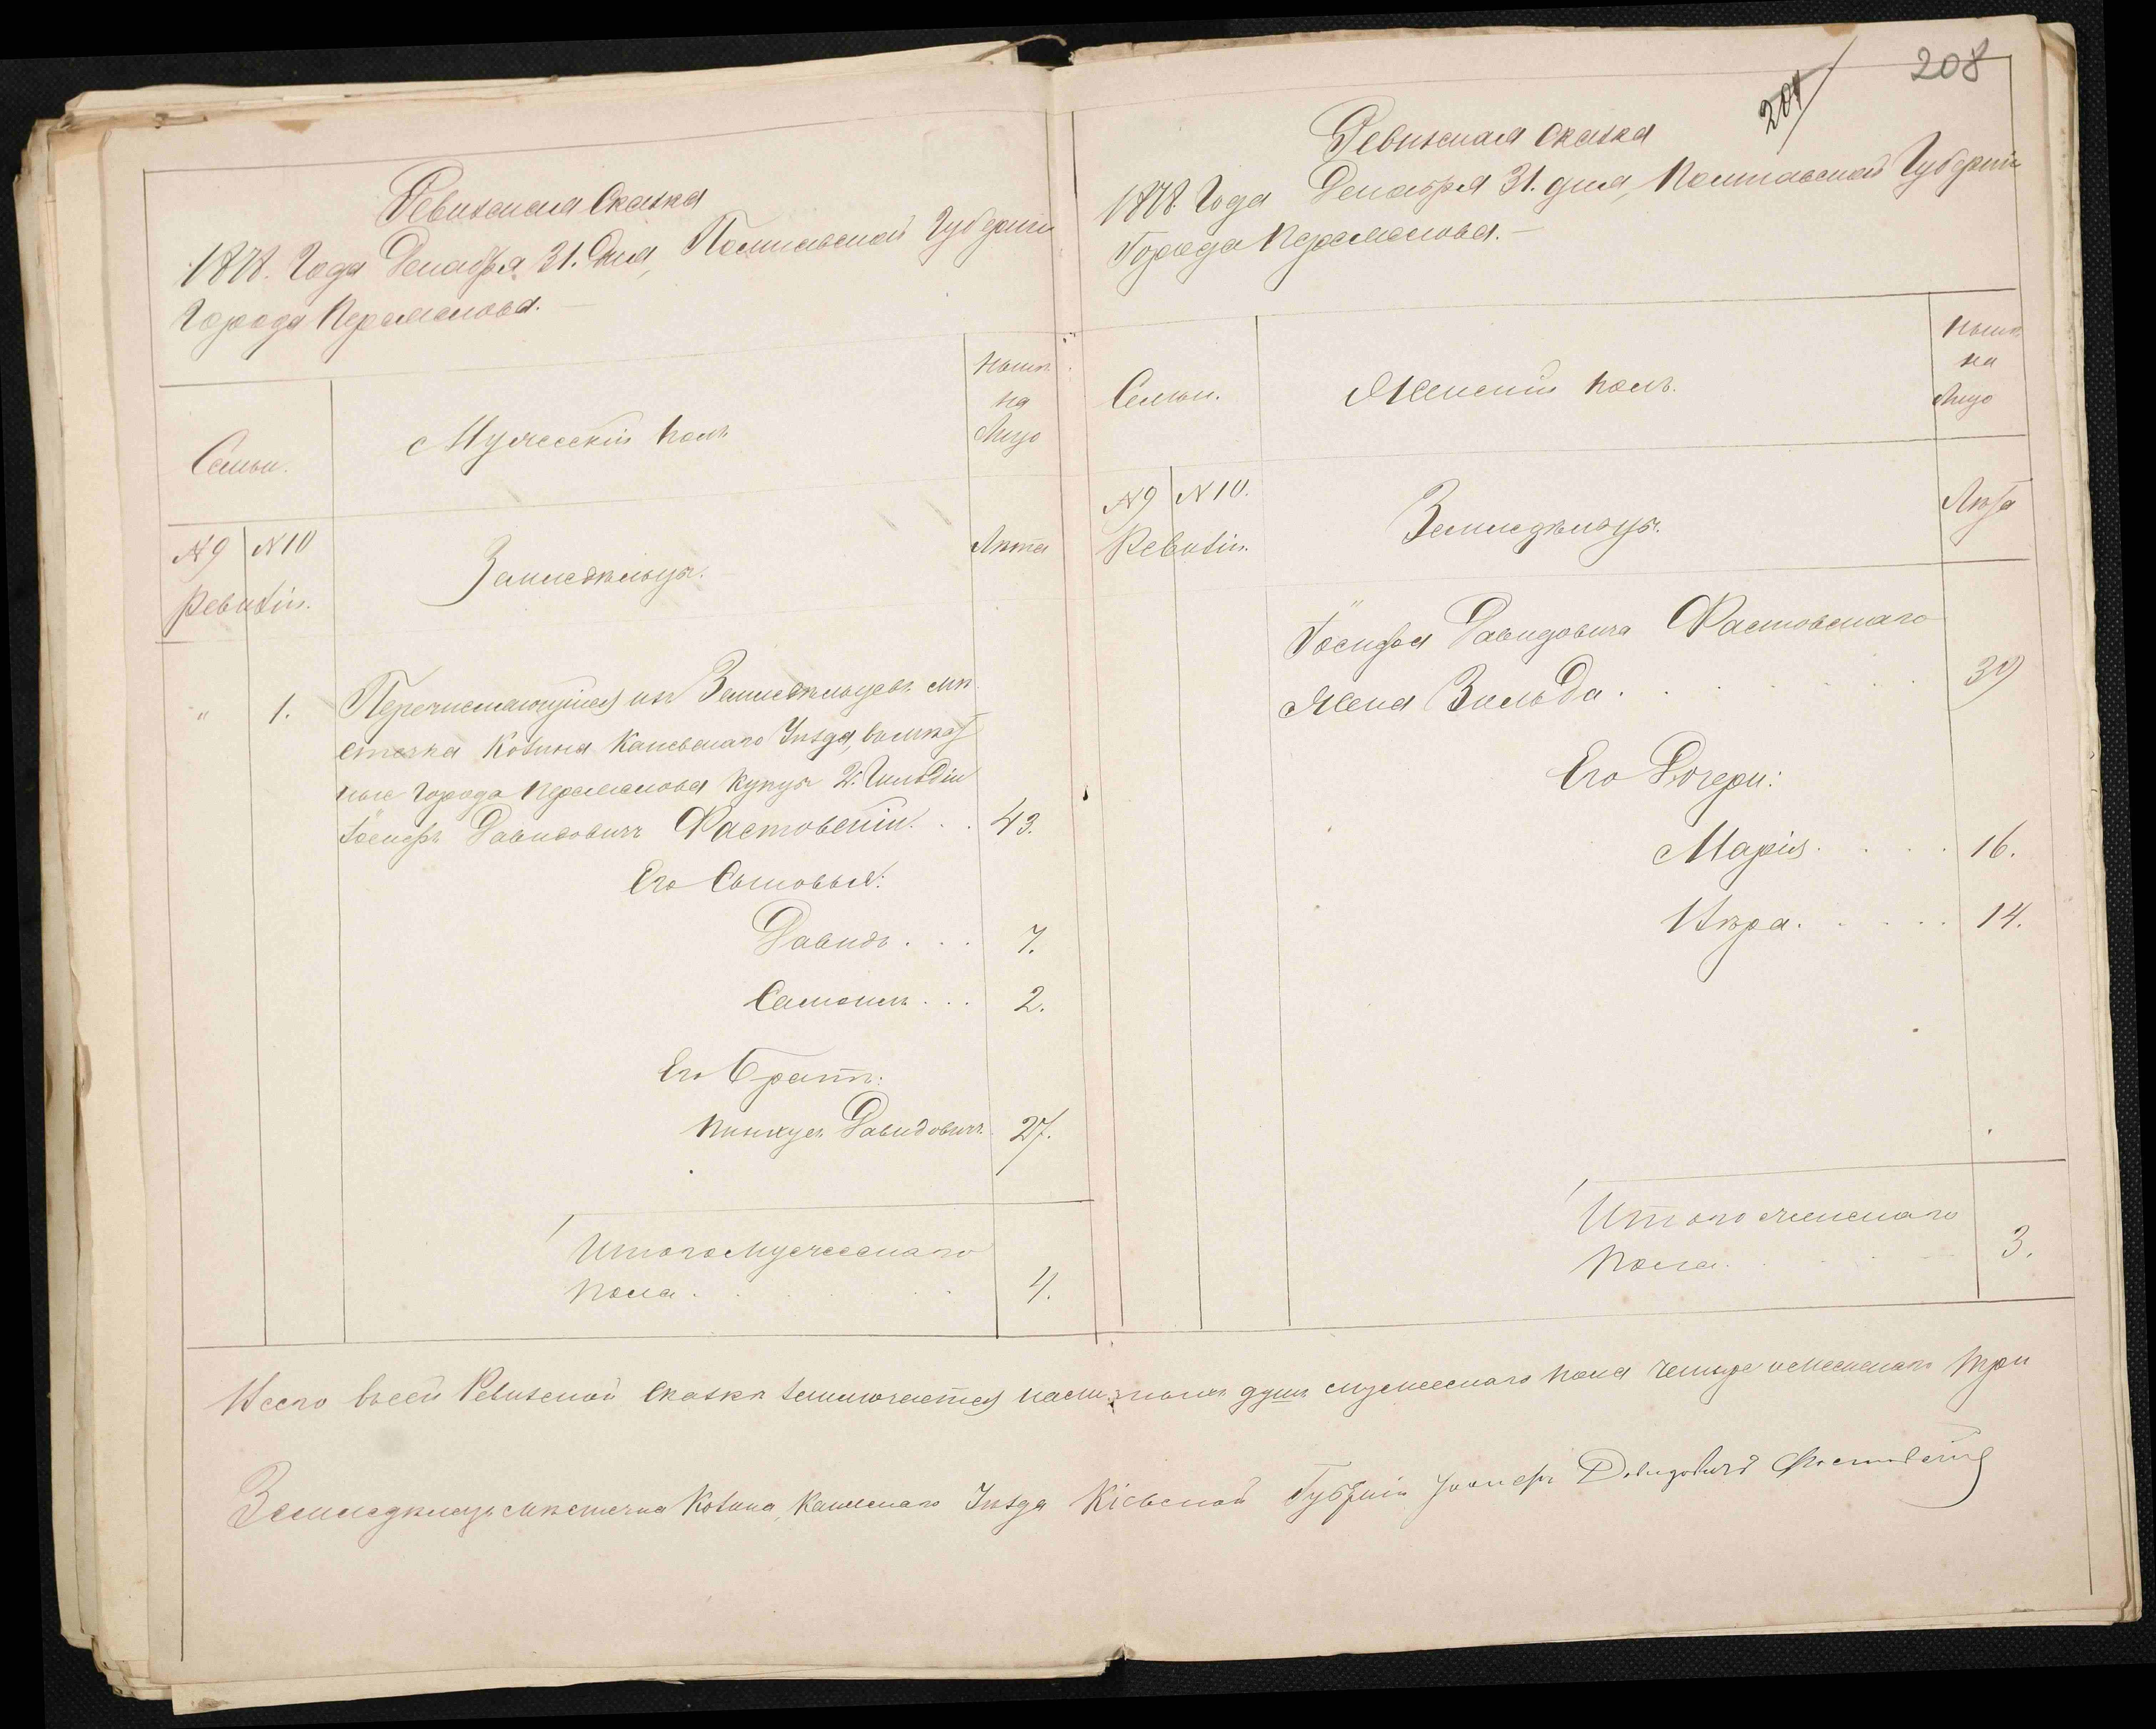 Ревизская Сказка
1878. Года Декабря 31. Дня, Полтавской Губерніи
Города Переяслова.
Семьи.
Мужескій полъ
Нынѣ
на
Лицо
№ 9 № 10
Ревизіи.
Земледѣльцы.
Лѣта
" 1. Перечисляющійся изъ Земледѣльцевъ мѣ
стечка Козина Каневскаго Уѣзда,
города Переяслова купцы 2й Гильдіи
Іосифъ Давидовичъ Фастовскій. . . 43.
Его Сыновья:
Давидъ . . . 7.
Самоилъ . . . 2.
Его Братъ:
Пинкусъ Давидовичъ. 27.
Итого мужескаго
пола . . . 4.
208
Ревизская Сказка
1878. Года Декабря 31. дня, Полтавской Губерніи
Города Переяслова.
Семьи.
Женскій полъ.
Нынѣ
на
Лицо
№ 9 № 10.
Ревизіи.
Земледѣльцы.
Лѣта
Іосифа Давидовича Фастовскаго
Жена Зильда . . . 39
Его Дочери:
Марія . . . 16.
Вѣра . . . 14.
Итого женскаго
пола . . . 3.
Всего въ сей Ревизской Сказкѣ заключается душъ мужескаго пола четыре и женскаго три
Земледѣлецъ мѣстечка Козина, Каневскаго Уѣзда Кіевской Губерніи Іосифъ Давидовичъ Фастовскій